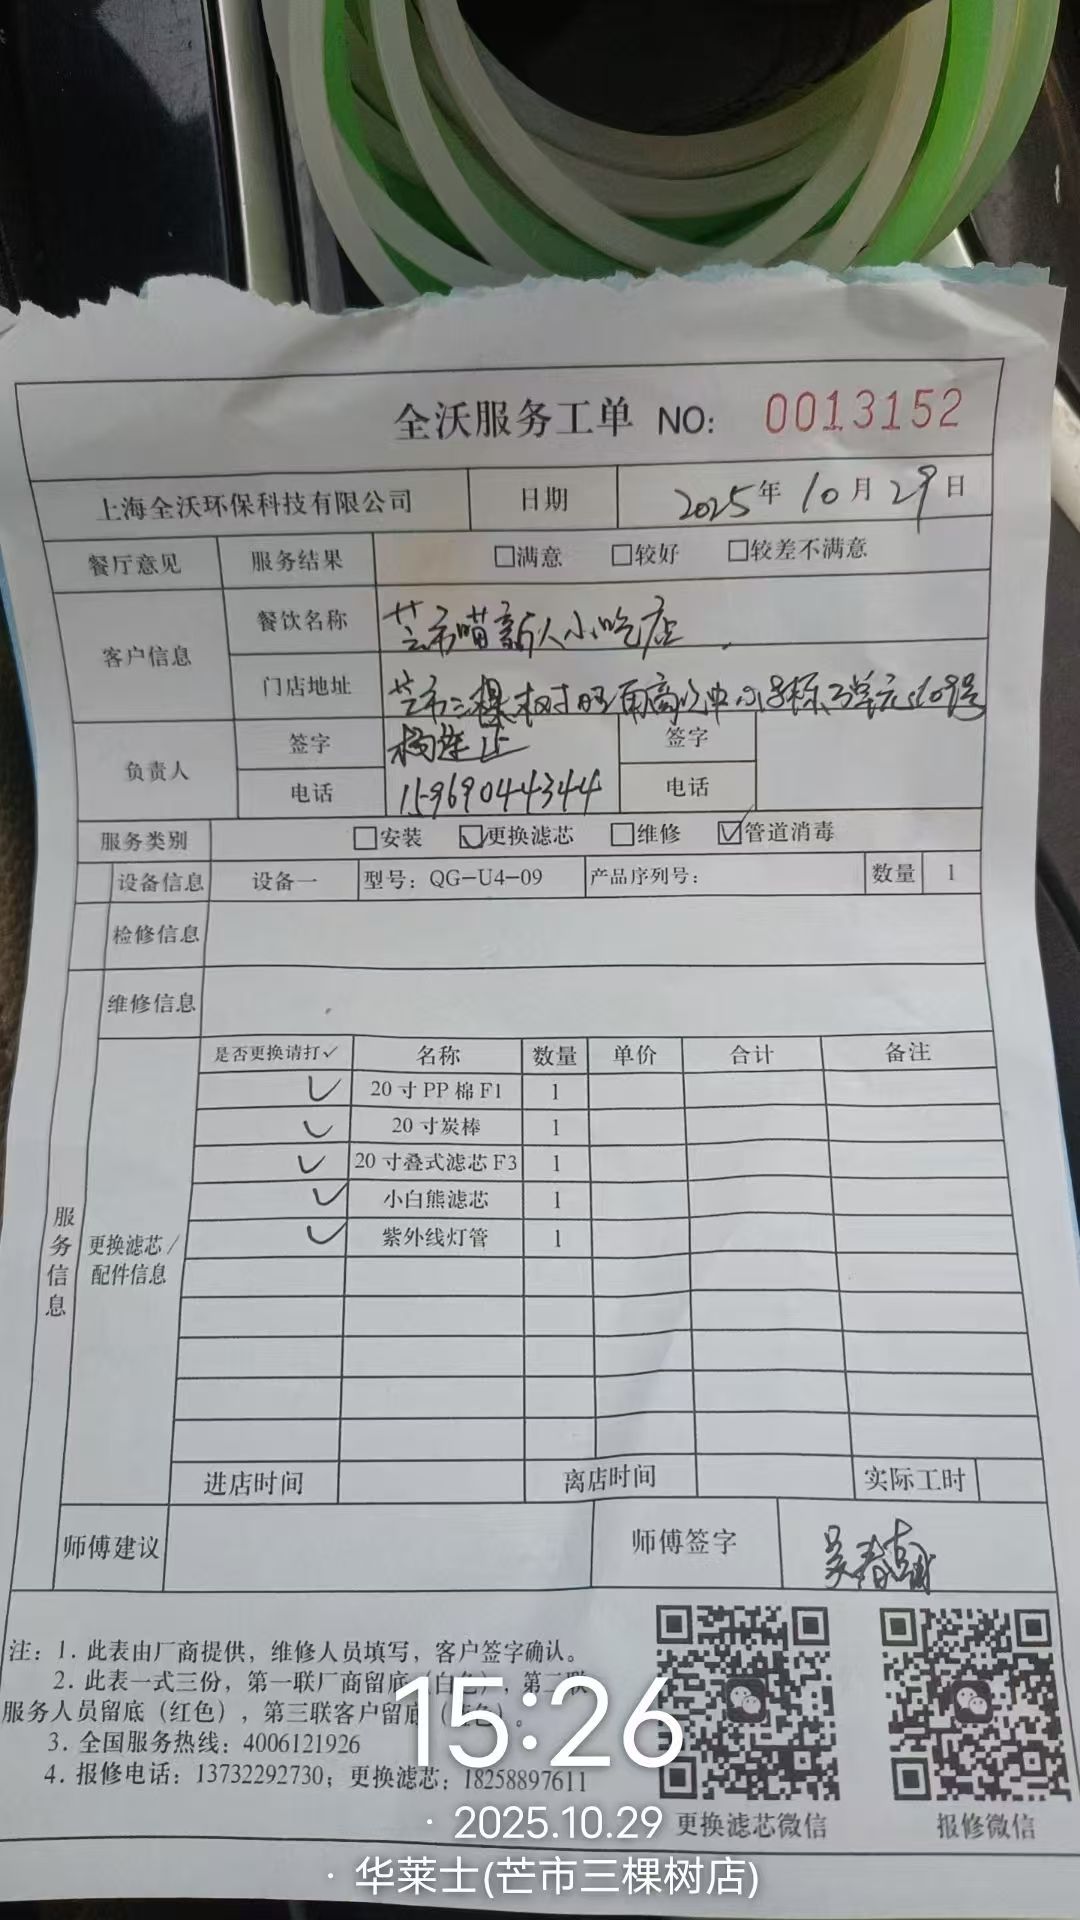 全沃服务工单 NO: 0013152
上海全沃环保科技有限公司 日期 2025年10月29日
餐厅意见 服务结果 □满意 □较好 □较差不满意
客户信息 餐饮名称 芒市喵新人小吃店
门店地址 芒市三棵树
负责人 签字 杨 签字
电话 15969044344 电话
服务类别 □安装 ☑更换滤芯 □维修 ☑管道消毒
设备信息 设备一 型号：QG-U4-09 产品序列号： 数量 1
检修信息
维修信息
服务信息
更换滤芯/配件信息
是否更换请打✓ 名称 数量 单价 合计 备注
✓ 20寸PP棉F1 1
✓ 20寸炭棒 1
✓ 20寸叠式滤芯F3 1
✓ 小白熊滤芯 1
✓ 紫外线灯管 1
进店时间 离店时间 实际工时
师傅建议 师傅签字 吴春
注：1. 此表由厂商提供，维修人员填写，客户签字确认。
2. 此表一式三份，第一联厂商留底（白色），第二联
服务人员留底（红色），第三联客户留底（色）。
3. 全国服务热线：4006121926
4. 报修电话：13732292730；更换滤芯：18258897611
更换滤芯微信 报修微信
15:26
· 2025.10.29
· 华莱士(芒市三棵树店)